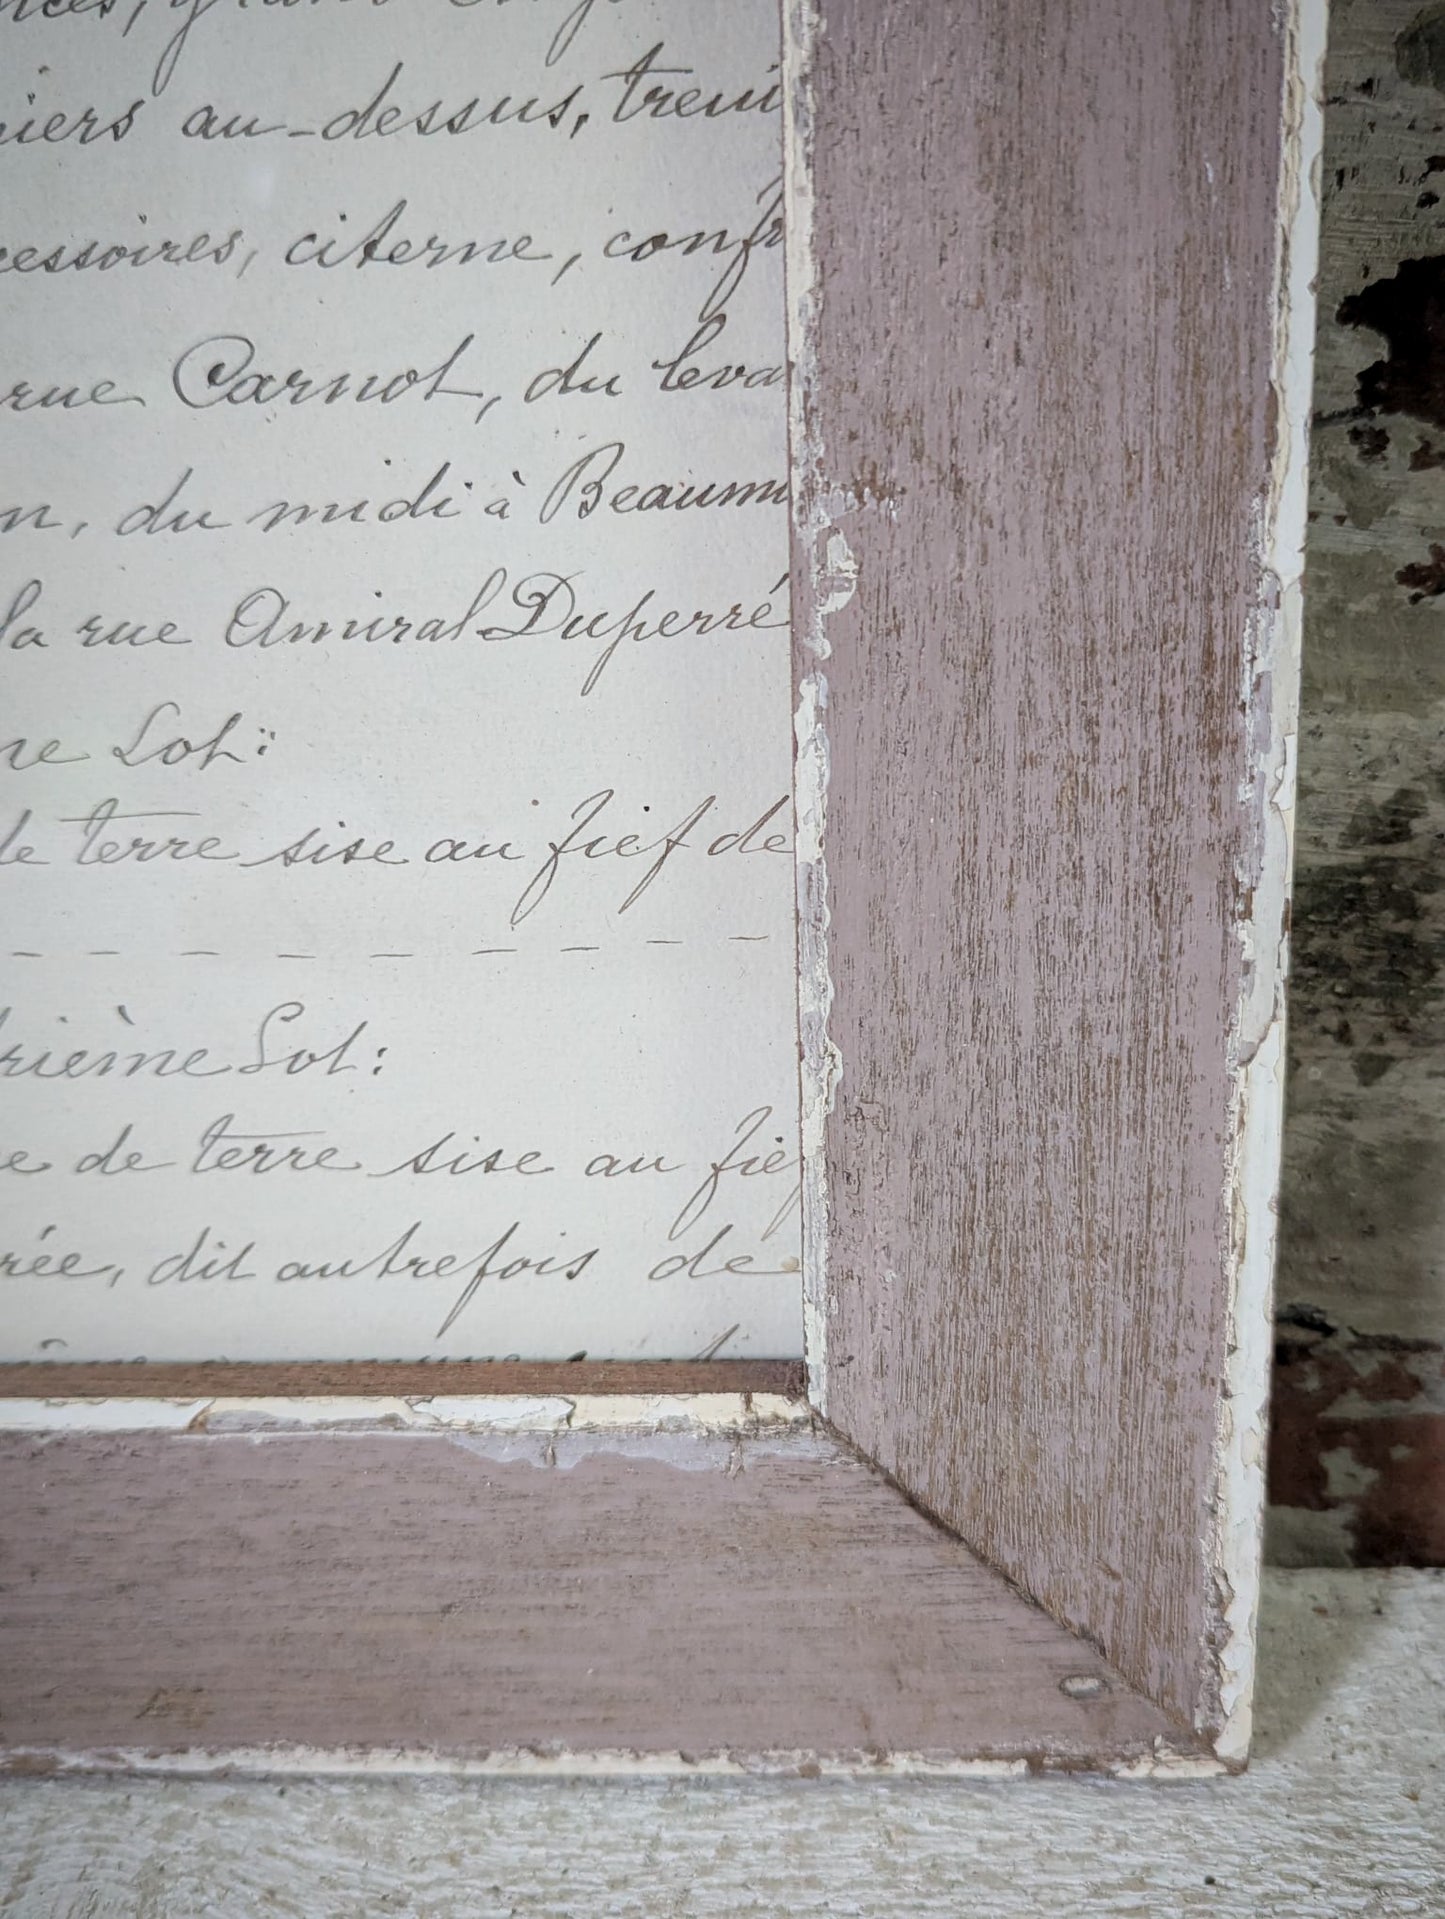 au-dessus,
cessoires, citerne, conf
rue Carnot, du leva
n, du midi à Beaum
la rue Amiral Duperré
ne Lot:
de terre sise au fief de
rième Lot:
e de terre sise au fief
rée, dit autrefois de